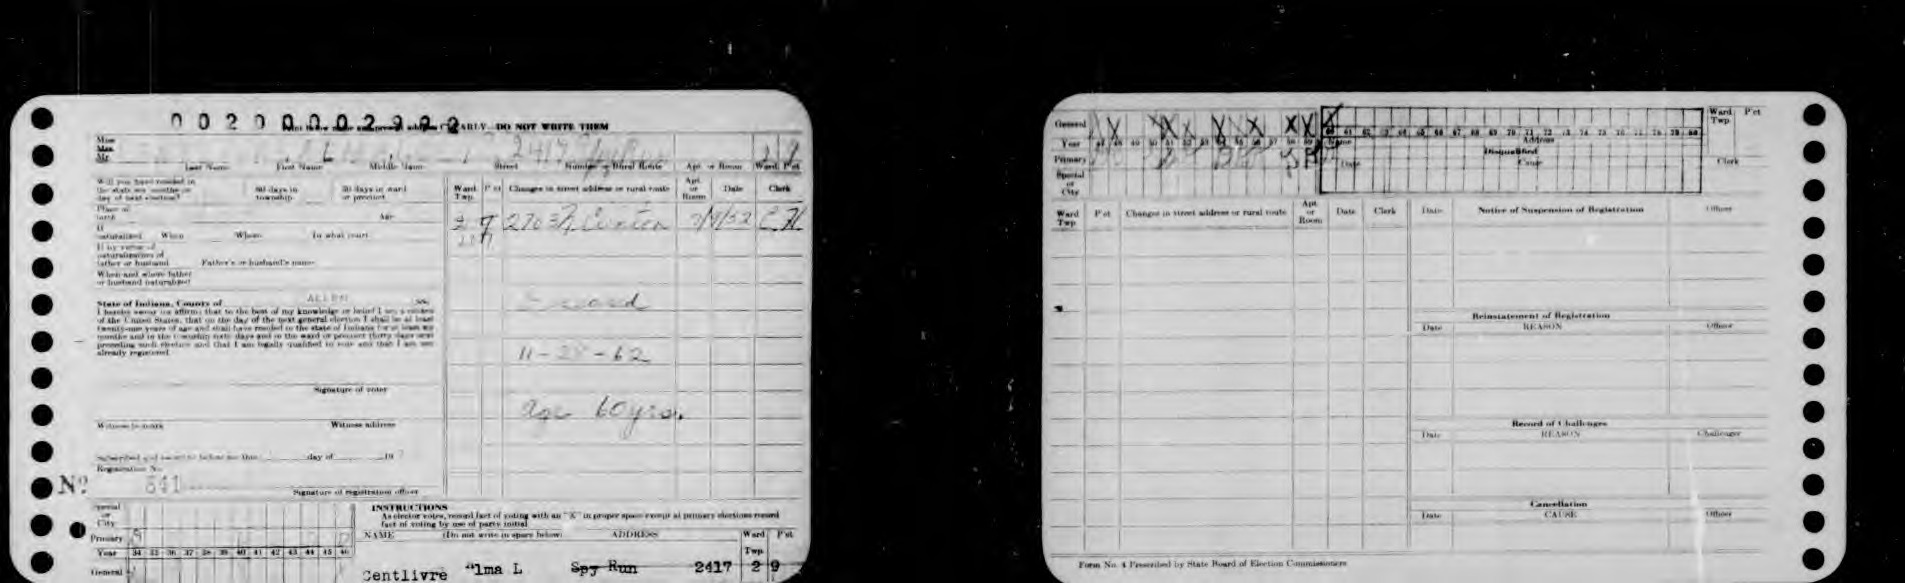 002000002922
CLEARLY DO NOT WRITE THEM
Miss
Mrs
Mr
L 2417
Last Name First Name Middle Name Street Number or Rural Route Apt. or Room Ward P'ct
Will you have resided in
the state six months on
day of next election?
60 days in
township
30 days in ward
or precinct
Ward
Twp.
P'ct
Changes in street address or rural route
Apt
or
Room
Date
Clerk
Place of
birth
Age
2 9 2703½ 7/9/52
If
naturalized When Where In what court
If by virtue of
naturalization of
father or husband
Father's or husband's name
When and where father
or husband naturalized
State of Indiana, County of ALLEN ss.
I hereby swear (or affirm) that to the best of my knowledge or belief I am a citizen
of the United States, that on the day of the next general election I shall be at least
twenty-one years of age and shall have resided in the state of Indiana for at least six
months and in the township sixty days and in the ward or precinct thirty days next
preceding such election and that I am legally qualified to vote and that I am not
already registered.
11-28-62
age 60 yrs.
Signature of voter
Witness to mark Witness address
Subscribed and sworn to before me this day of 19
Registration No.
Nº 541
Signature of registration officer
INSTRUCTIONS
As elector votes, record fact of voting with an "X" in proper space except at primary elections record
fact of voting by use of party initial
Special
or
City
Primary
Year 34 35 36 37 38 39 40 41 42 43 44 45 46
General
NAME (Do not write in space below) ADDRESS Ward Twp. P'ct
Centlivre "lma L Spy Run 2417 2 9
General X X X X X X X X X
Year 47 48 49 50 51 52 53 54 55 56 57 58 59 60 61 62 63 64 65 66 67 68 69 70 71 72 73 74 75 76 77 78 79 80
Primary
Special
or
City
Name Address
Disqualified
Date Cause Clerk
Ward
Twp.
P'ct
Ward
Twp
P'ct
Changes in street address or rural route
Apt
or
Room
Date
Clerk
Date Notice of Suspension of Registration Officer
Reinstatement of Registration
Date REASON Officer
Record of Challenges
Date REASON Challenger
Cancellation
Date CAUSE Officer
Form No. 4 Prescribed by State Board of Election Commissioners